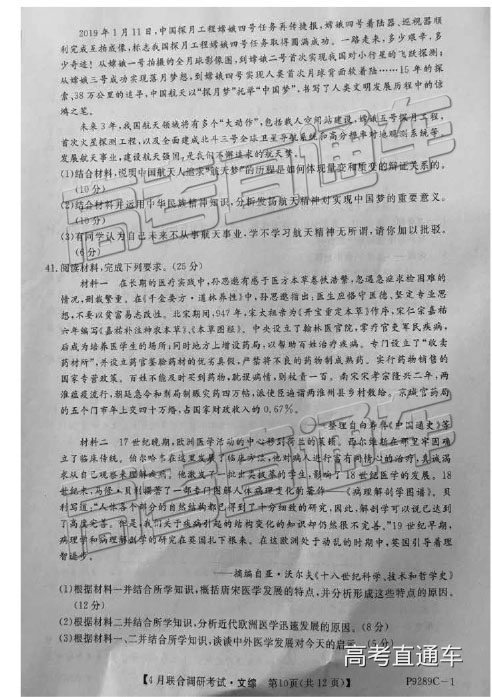 2019年1月11日,中国探月工程嫦娥四号任务再传捷报,嫦娥四号着陆器、巡视器顺
利完成互拍成像,标志我国探月工程嫦娥四号任务取得圆满成功。一路走来,多少艰辛,多
少奇迹!从嫦娥一号拍摄的全月球影像图,到嫦娥二号首次实现我国对小行星的飞跃探测;
从嫦娥三号成功实现落月梦想,到嫦娥四号实现人类首次月球背面软着陆……15年的探
索,38万公里的追寻,中国航天以“探月梦”托举“中国梦”,书写了人类文明发展历程中的惊
鸿之笔。
未来3年,我国航天领域将有多个“大动作”,包括载人空间站建设,嫦娥五号工程、
首次火星探测工程,以及全面建成北斗三号全球卫星导航系统和高分辨率对地观测系统等。
发展航天事业,建设航天强国,是我们不懈追求的航天梦。
(1)结合材料,说明中国航天人追求“航天梦”的历程是如何体现量变和质变的辩证关系的。
(10分)
(2)结合材料并运用中华民族精神知识,分析发扬航天精神对实现中国梦的重要意义。
(10分)
(3)有同学认为自己未来不从事航天事业,学不学习航天精神无所谓,请你加以批驳。
(6分)
41.阅读材料,完成下列要求。(25分)
材料一 在长期的医疗实践中,孙思邈有感于医方本草卷帙浩繁,忽遇急症求检困难的
情况,删裁繁重。在《千金要方·道林养性》中,孙思邈指出:医生应恪守医德,坚定专业思
想,不要以贫富易志改性。北宋期间,947年,宋太祖令为《开宝重定本草》作序,宋仁宗嘉祐
六年编写《嘉祐补注神农本草》、《本草图经》。中央设立了翰林医官院,掌疗官吏军民疾病,
后成为培养医学生的场所;同时地方上增设药局,以帮助百姓治疗疾病。专门设立了“收卖
药材所”,并设立药官鉴验药材的优劣真假,严禁将不良的药物制成熟药。实行药物销售的
国家专营政策。百姓不能及时买到药物,耽误病情,则杖责一百。南宋宋孝宗隆兴二年,两
淮瘟疫流行,朝廷急令和剂局制赈灾药四万帖,派使臣遍谓两淮州县乡村散给。京城官药局
的五个门市年上交四十万缗,占国家财政收入的0.67%。
——整理自白寿彝《中国通史》等
材料二 17世纪晚期,欧洲医学活动的中心移到荷兰的莱顿。西尔维斯在那里牢固确
立了临床传统。伯尔哈韦在这里发展了临床方法,他对病人进行富有同情心的治疗,真诚渴
求从自己观察来理解疾病。他激发了一批出类拔萃的学生,影响了18世纪医学的发展。18
世纪末,马修·贝利撰著了一部专门图解人体病理变化的著作——《病理解剖学图谱》。贝
利写道,“人体各个部分的自然结构都已得到了十分细致的研究,因此,解剖学可以说已达到
了高度完善。但是,我们关于疾病引起的结构变化的知识却仍然很不完善。”19世纪早期,
病理学和病理解剖学的研究在英国扎下根来。在这欧洲处于动乱的时期中,英国引导着理
智进步。
——摘编自亚·沃尔夫《十八世纪科学、技术和哲学史》
(1)根据材料一并结合所学知识,概括唐宋医学发展的特点,并分析形成这些特点的原因。
(12分)
(2)根据材料二并结合所学知识,分析近代欧洲医学迅速发展的原因。(8分)
(3)根据材料一、二并结合所学知识,谈谈中外医学发展对今天的启示。(5分)
【4月联合调研考试·文综 第10页(共12页)】 P9289C-1
高考直通车
高考直通车
高考直通车